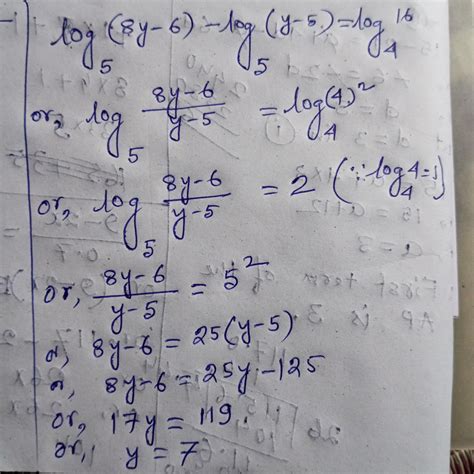 log₅(8y-6) - log₅(y-5) = log₄16
or, log₅ (8y-6)/(y-5) = log₄(4)²
or, log₅ (8y-6)/(y-5) = 2 (∵ log₄4=1)
or, (8y-6)/(y-5) = 5²
or, 8y-6 = 25(y-5)
or, 8y-6 = 25y-125
or, 17y = 119
or, y = 7